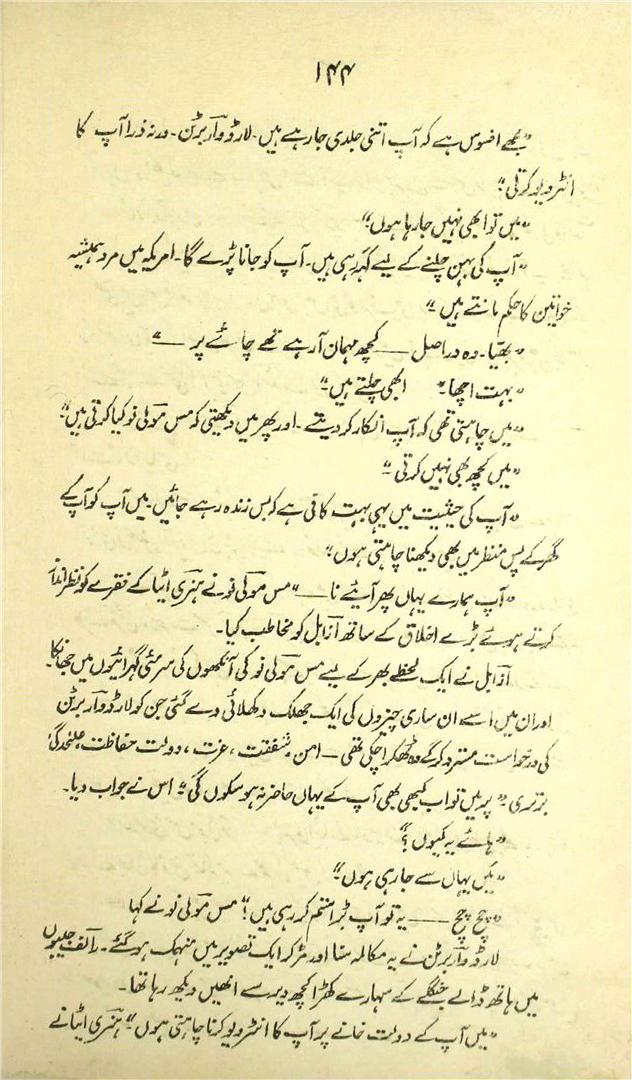 ۱۴۴
"مجھے افسوس ہے کہ آپ اتنی جلدی جا رہے ہیں۔ لارڈ وآربرٹن۔ ورنہ ذرا آپ کا
انٹرویو کرتی"
"میں تو ابھی نہیں جا رہا ہوں"
"آپ کی بہن چلنے کے لیے کہہ رہی ہیں۔ آپ کو جانا پڑے گا۔ امریکہ میں مرد ہمیشہ
خواتین کا حکم مانتے ہیں"
"بھیّا۔ وہ دراصل —— کچھ مہمان آ رہے تھے چائے پر ——"
"بہت اچھا" ابھی چلتے ہیں"
"میں چاہتی تھی کہ آپ انکار کر دیتے۔ اور پھر میں دیکھتی کہ مس موَلی نو کیا کرتی ہیں"
"میں کچھ بھی نہیں کرتی"
"آپ کی حیثیت میں یہی بہت کافی ہے کہ بس زندہ رہے جائیں۔ میں آپ کو آپ کے
گھر کے پس منظر میں بھی دیکھنا چاہتی ہوں"
"آپ ہمارے یہاں پھر آیئے نا ——" مس موَلی نو نے ہنری اٹیا کے فقرے کو نظر انداز
کرتے ہوئے بڑے اخلاق کے ساتھ آزابل کو مخاطب کیا۔
آزابل نے ایک لحظے بھر کے لیے مس موَلی نو کی آنکھوں کی سرمئی گہرائیوں میں جھانکا۔
اور ان میں اسے ان ساری چیزوں کی ایک جھلک دکھلائی دے گئی جن کو لارڈ وآربرٹن
کی درخواست مسترد کر کے وہ ٹھکرا چکی تھی — امن، شفقت، عزت، دولت حفاظت، علیحدگی
برتری " پر میں تو اب کبھی بھی آپ کے یہاں حاضر نہ ہو سکوں گی" اس نے جواب دیا۔
"ہائے یہ کیوں؟"
"میں یہاں سے جا رہی ہوں"
"چچ چچ —— یہ تو آپ بڑا ستم کر رہی ہیں" مس موَلی نو نے کہا
لارڈ وآربرٹن نے یہ مکالمہ سنا اور مڑ کر ایک تصویر میں منہمک ہو گئے۔ رآلف جیبوں
میں ہاتھ ڈالے جنگلے کے سہارے کھڑا کچھ دیر سے انھیں دیکھ رہا تھا۔
"میں آپ کے دولت خانے پر آپ کا انٹرویو کرنا چاہتی ہوں" ہنری اٹیا نے